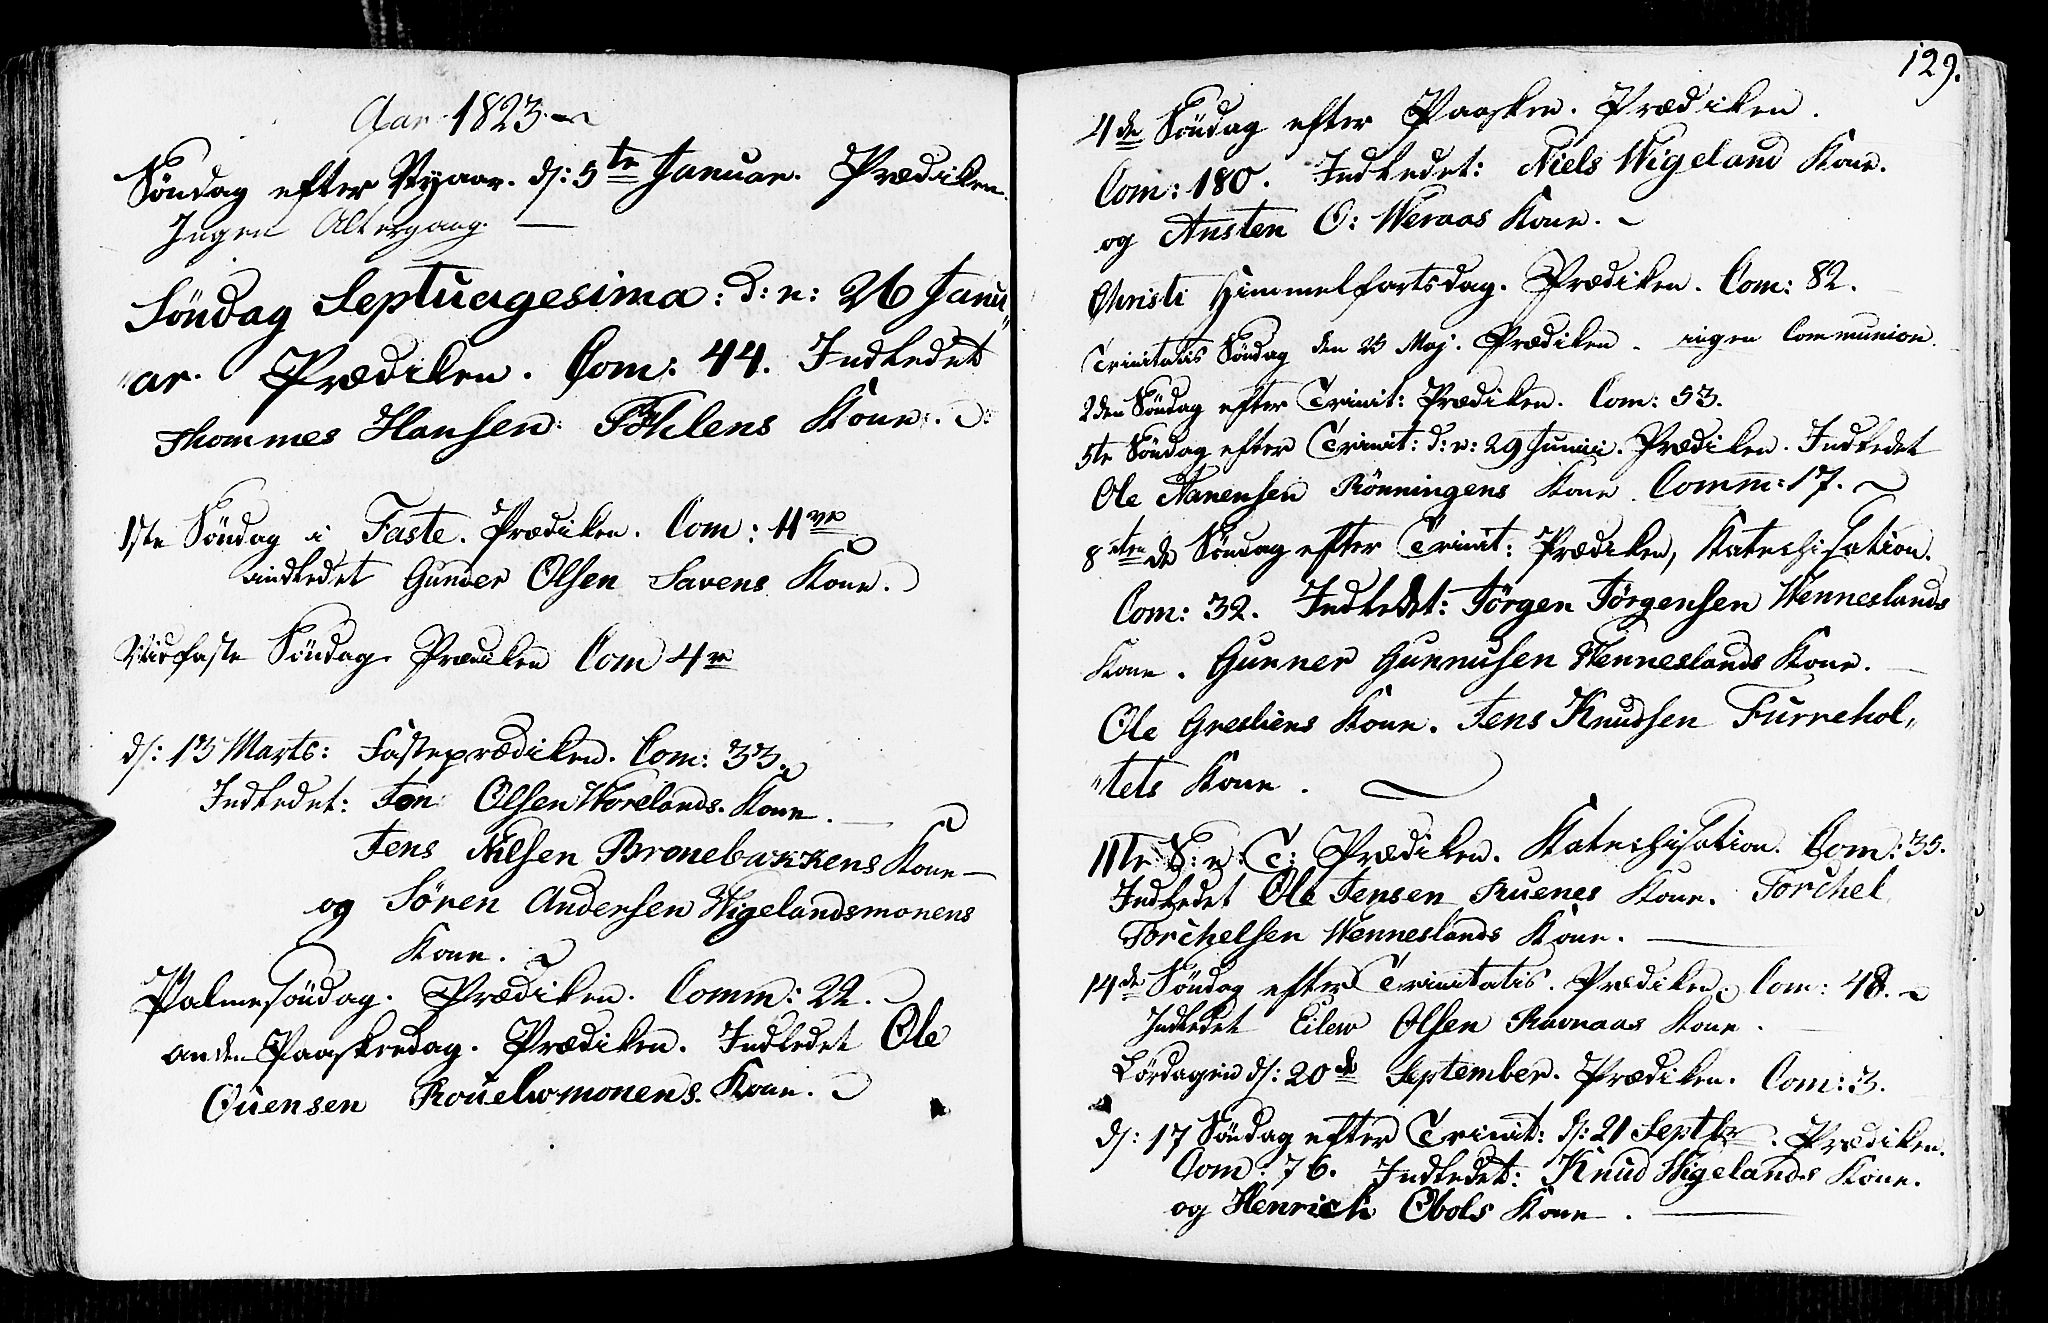 Aar 1823.
Søndag efter Nyaar. d: 5te Januar. Prædiken.
Ingen Altergang. —
Søndag Septuagesima: d: n: 26 Janu„
„ar. Prædiken. Com: 44. Indledet
Thommes Hansen Føhlens Kone.
1ste Søndag i Faste. Prædiken. Com: 11ve
indledet Gunder Olsen Savens Kone.
Midfaste Søndag. Prædiken Com 4re
d: 13 Marts: Fasteprædiken. Com: 33.
Indledet: Jon Olsen Worelands. Kone. —
Jens Nilsen Bronebakkens Kone —
og Søren Andersen Wigelandsmonens
Kone.
Palmesøndag. Prædiken. Comm: 22.
anden Paaskedag. Prædiken. Indledet Ole
Ouensen Rouelwmonens. Kone.
129.
4de Søndag efter Paasken. Prædiken.
Com: 180. Indledet: Niels Wigeland Kone.
og Austen O: Weraas Kone.
Christi Himmelfartsdag. Prædiken. Com: 82.
Trinitatis Søndag den 25 Maj. Prædiken. ingen Communion.
2den Søndag efter Trinit: Prædiken. Com: 53.
5te Søndag efter Trinit: d: n: 29 Junii. Prædiken. Indledet
Ole Nanensen Rönningens Kone. Comm: 17.
8 de Søndag efter Trinit: Prædiken, Katechisation.
Com: 32. Indledet: Jörgen Jörgensen Wenneslands
Kone. Gunner Gunnusen Wenneslands Kone. —
Ole Greśliens Kone. Jens Knudsen Furrehol„
„tets Kone.
11te S: e: T: Prædiken. Katechisation. Com: 35.
Indledet Ole Jensen Ruenes Kone. Torchel
Torchelsen Wenneslands Kone. —
14de Søndag efter Trinitatis. Prædiken. Com: 48.
Indledet Eilew Olsen Ravnaas Kone.
Lørdagen d: 20de September. Prædiken. Com: 3.
d: 17 Søndag efter Trinit: d: 21 Septbr. Prædiken.
Com: 76. Indledet: Knud Wigelands Kone.
og Henrich Obols Kone. —